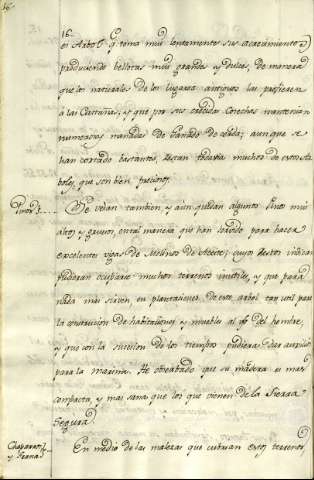 16.
16.
es Arbol q.e toma mui lentamente sus acrecimientos,
produciendo bellotas muy grandes y dulces, de manera
que los naturales de los lugares antiguos las prefieren
a las Castañas, y que por sus crecidas Cosechas mantenian
numerosas manadas de Ganado de cerda; aun que se
han cortado bastantes, restan todavia muchos de estos Ar
boles, que son bien preciosos.
Pinos Se vehian tambien, y aun quedan algunos Pinos mui
altos y gruesos, en tal manera que han servido para hacer
excelentes vigas de Molinos de Aceite; cuyos restos indican
pudieran ocuparse muchos terrenos inutiles, y que para
nada mas sirven, en plantaciones de este arbol tan util para
la construccion de habitaciones y muebles al uso del hombre,
y que con la sucesion de los tiempos pudiera ser
para la marina. He observado que su madera es mas
compacta, y mas sana que los que vienen de la Sierra
Segura
Chaparros
y Sª En medio de las malezas que cubrian estos terrenos